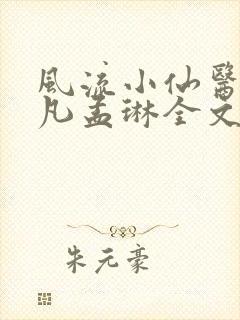 風流小仙醫
凡孟琳全文
朱元豪